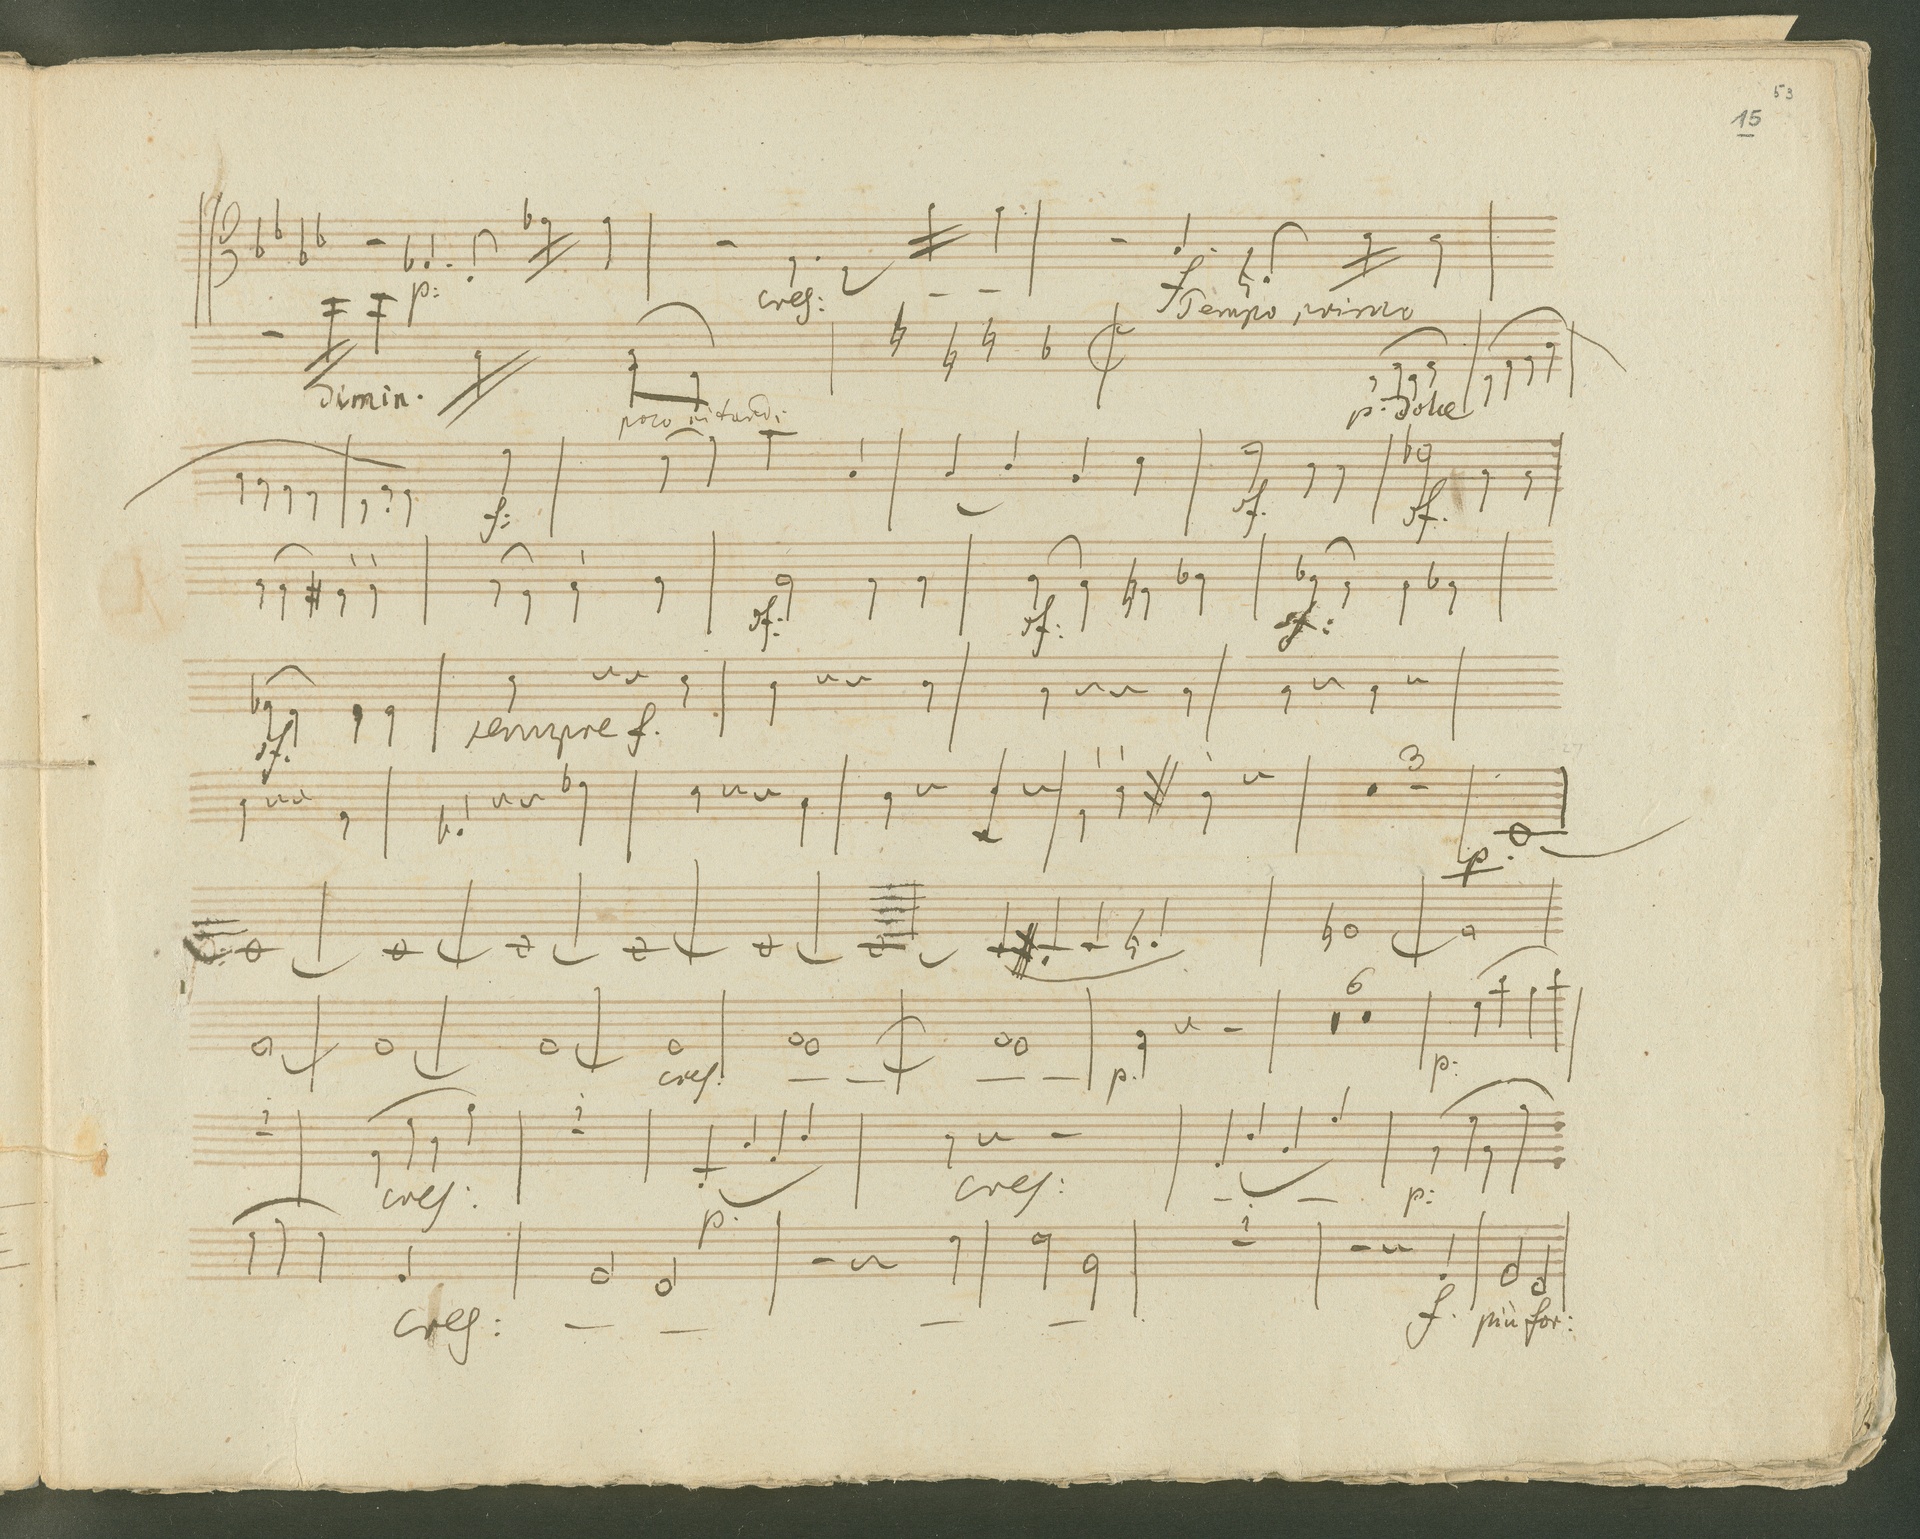 53
15
p:
cres: – –
f Tempo primo
dimin.
poco ritardi:
p. dolce
f:
sf.
sf.
sf:
sf:
sf:
sf.
sempre f.
3
p.
6
cres: – – – –
p.
p:
cres:
p.
cres: – –
p:
cres: – – – –
f. più for: